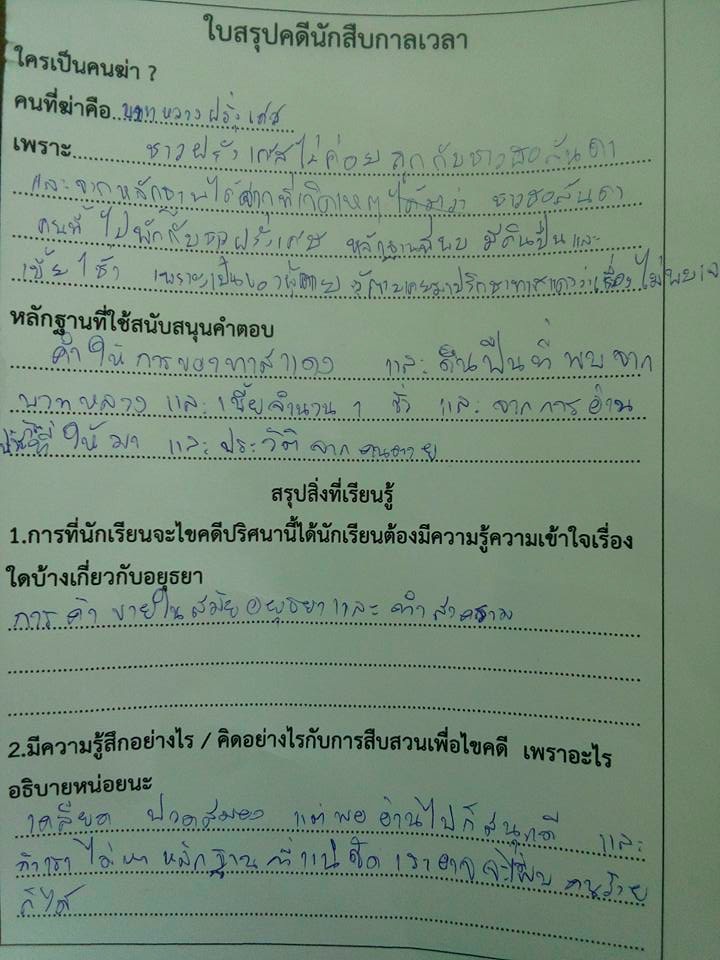 ใบสรุปคดีนักสืบกาลเวลา
ใครเป็นคนฆ่า ?
คนที่ฆ่าคือ บาทหลวงฝรั่งเศส
เพราะ ชาวฝรั่งเศสไม่ค่อยถูกกับชาวฮอลันดา
และจากหลักฐานได้จากที่เกิดเหตุ ได้มาว่า ชาวฮอลันดา
คนที่ไปพักกับชาวฝรั่งเศษ หลักฐานที่พบ มีดินปืน และ
เบี้ย 1 ชั่ว เพราะเป็นของผู้ตาย
หลักฐานที่ใช้สนับสนุนคำตอบ
คำให้การของทาสแดง และ ดินปืนที่ พบจาก
บาทหลวง และ เบี้ยจำนวน 1 ชั่ว และ จากการ อ่าน
ที่ ให้ มา และ ประวัติ จาก คนตาย
สรุปสิ่งที่เรียนรู้
1.การที่นักเรียนจะไขคดีปริศนานี้ได้นักเรียนต้องมีความรู้ความเข้าใจเรื่อง
ใดบ้างเกี่ยวกับอยุธยา
การค้าขายในสมัยอยุธยาและ ทำสงคราม
2.มีความรู้สึกอย่างไร / คิดอย่างไรกับการสืบสวนเพื่อไขคดี เพราะอะไร
อธิบายหน่อยนะ
เคลียด ปวดสมอง แต่พอ อ่านไปก็สนุกดี และ
ถ้าเรา ไม่หา หลักฐาน ที่แน่ชัด เราอาจจะไม่พบ คนร้าย
ก็ได้